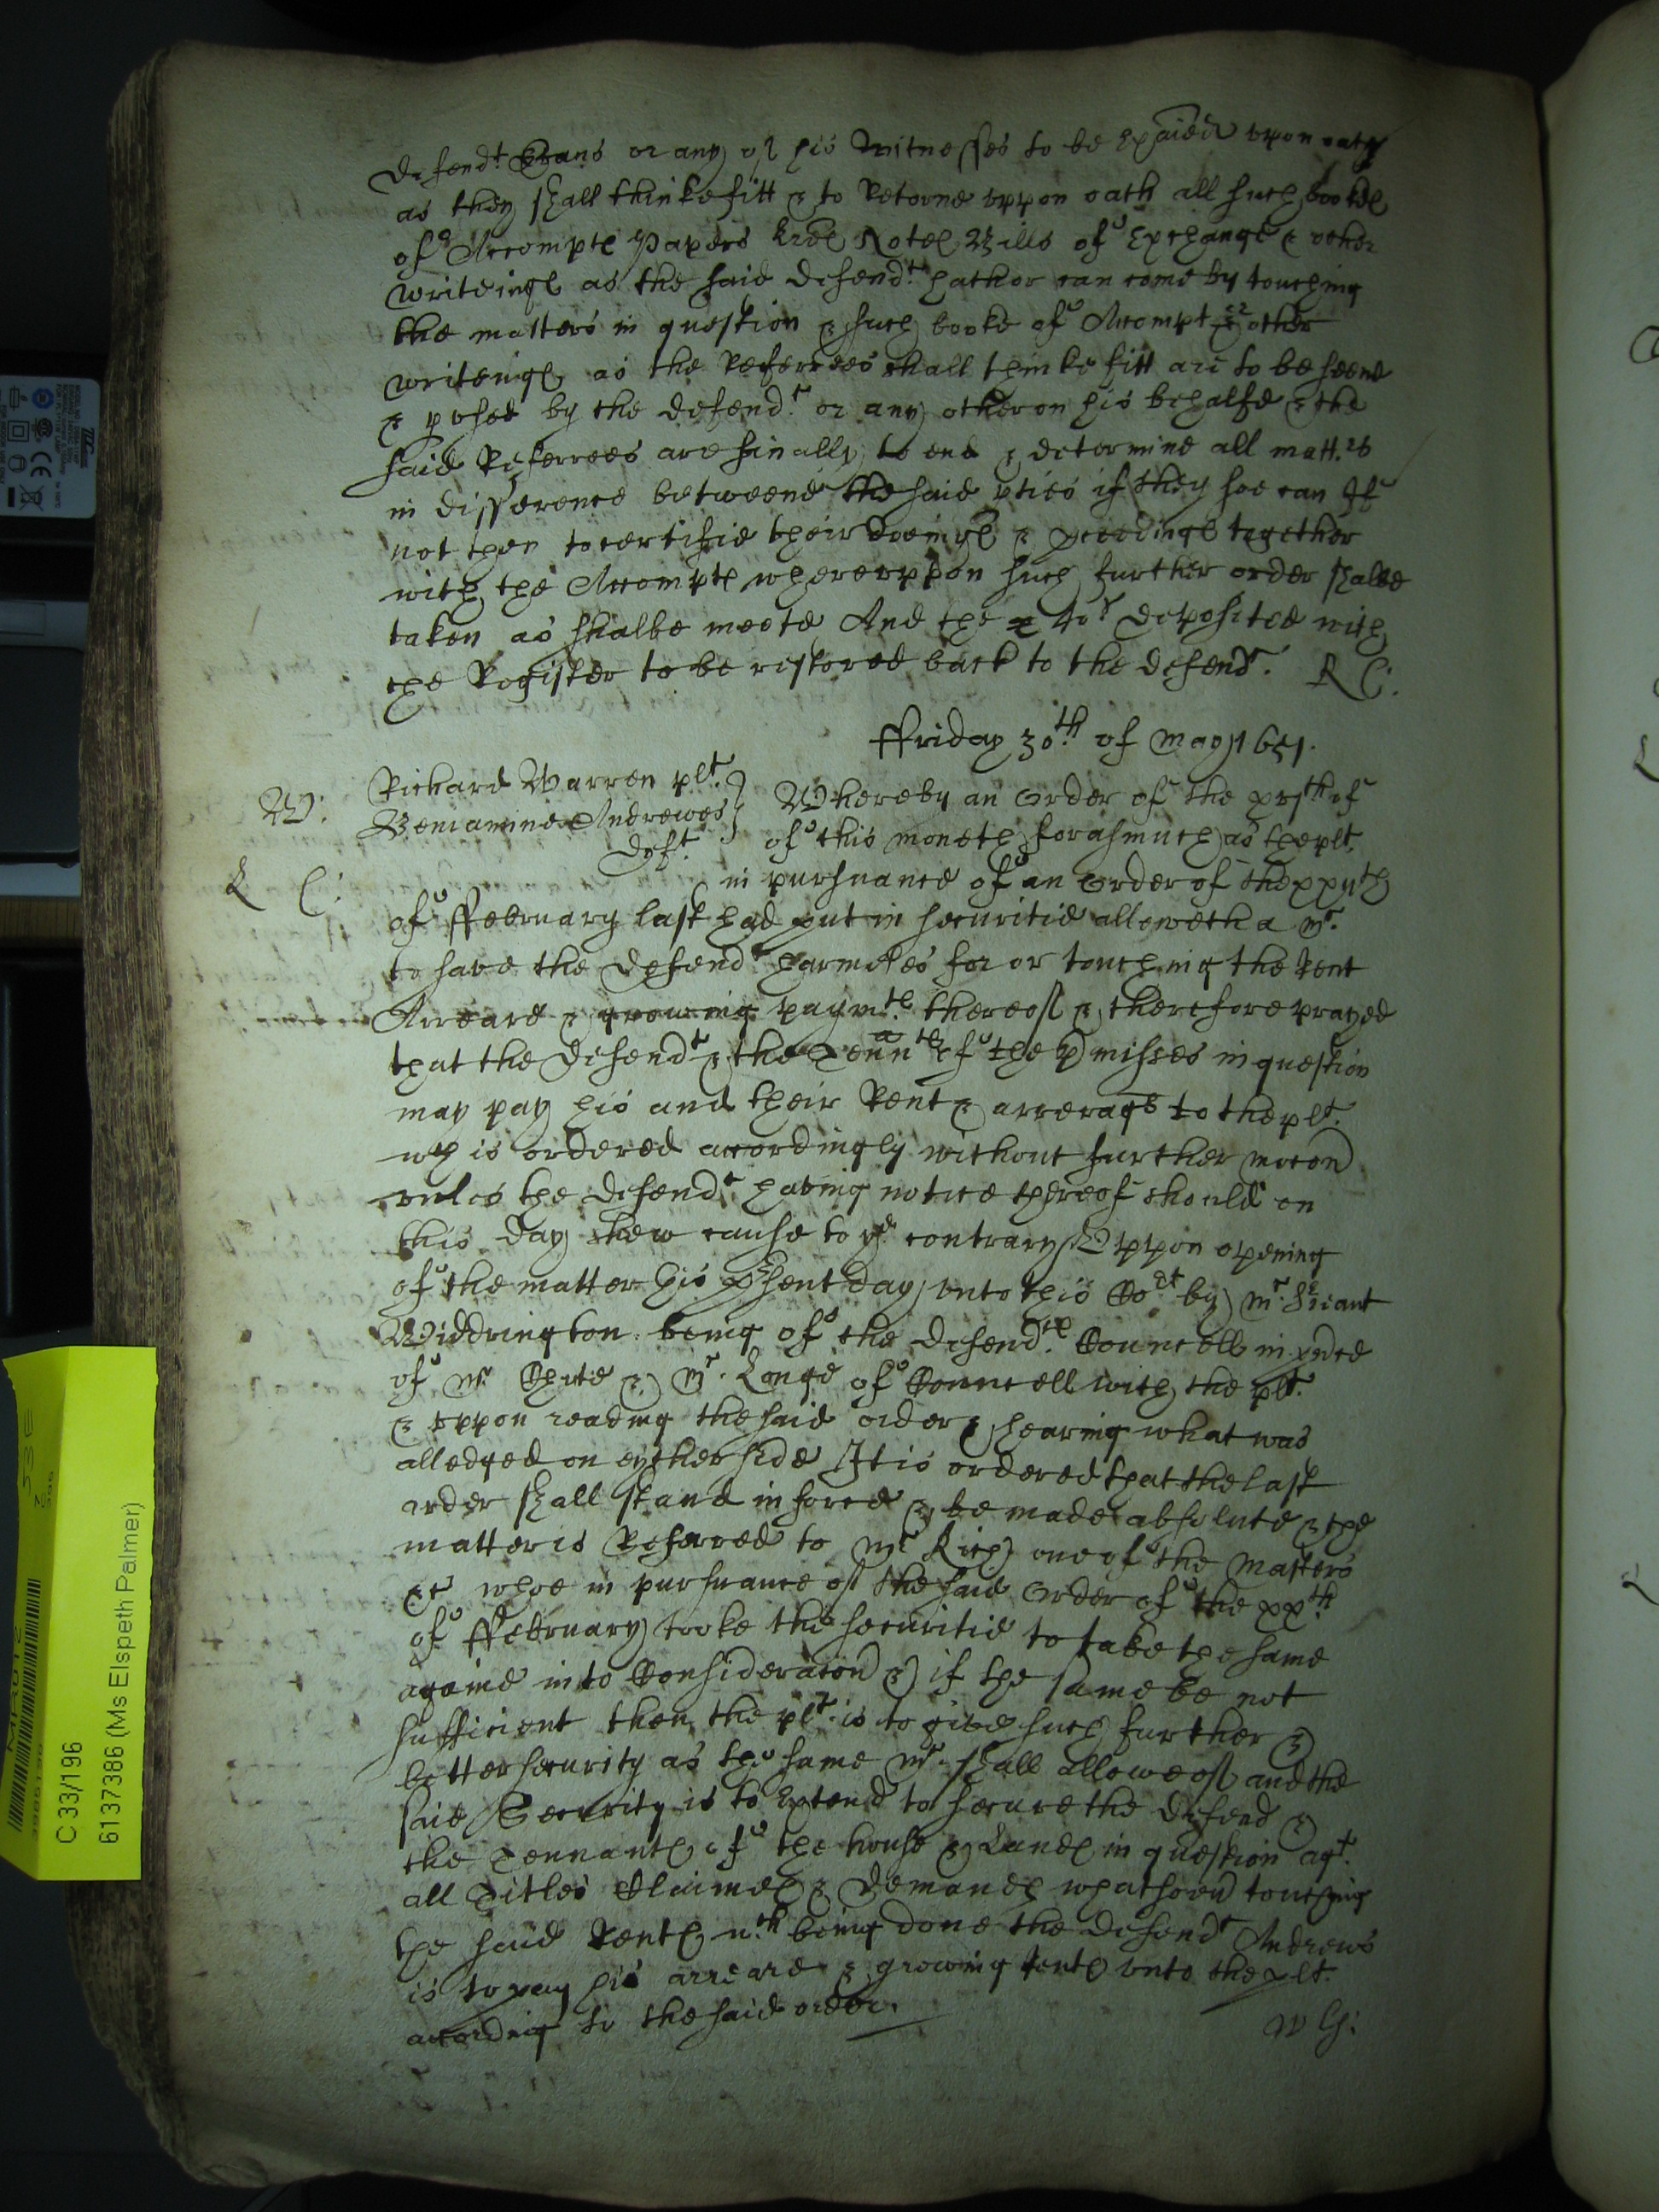 Defend.t Evans or any of his Witnesses to be Exaied vpon oath
as they shall thinke fitt & to Retorne vppon oath all such bookes
of Accomptes Papers Notes Bills of Exchange & other
writeinges as the said Defend.t hath or can come by touching
the matters in question & such booke of Accompt & other
writeinges as the Referrees shall thinke fitt are to be seene
& pvsed by the defend.t or any other on his behalfe & the
said Referrees are finally to end & determine all matt.rs
in difference betweene the said pties if they soe can If
not then to certifie their doeinges & pceedinges together
with the Accomptes wherevppon such further order shalbe
taken as shalbe meete And the 40s deposited with
the Register to be restored back to the defend.t R C:
ffriday 30.th of May 1651.
W: Richard Warren plt.
Beniamine Andrewes
Deft.
L C:
Whereby an Order of the xxjth of
of this moneth forasmuch as the plt.
in pursuance of an Order of the xxth
of ffebruary last had put in securitie alloweth a Mr.
to save the Defend.t harmeles for or touching the Rent
Arreare & growing paym.tes thereof & therefore prayed
that the Defend.t & the Tennates of the pmisses in question
may pay his and their Rent & arrerages to the plt.
wch is ordered accordingly without further mocon
vnles the Defend.t having notice thereof should on
this day shew cause to ye contrary Vppon opening
of the matter this psent day vnto this Cort by Mr. Seriant
Widdrington being of the Defend.tes Councell in pnce
of Mr Chute & Mr. Longe of Councell with the plt.
& vppon reading the said order & hearing what was
alledged on eyther side It is ordered that the last
order shall stand in force & be made absolute & the
matter is Referred to Mr Rich one of the Masters
&c whoe in pursuance of the said Order of the xxth
of ffebruary tooke the securitie to take the same
againe into Consideracon & if the same be not
sufficient then the plt. is to give such further &
better security as the same Mr. shall allowe of and the
said Security is to Extend to secure the Defend &
the Tennantes of the house & Landes in question agt.
all Titles Claimes & Demandes whatsoevr touching
the said Rentes wch being done the Defend.t Andrews
is to pay his arreare & growing rentes vnto the plt.
according to the said order.
W G:
C 33/196
6137386 (Ms Elspeth Palmer)